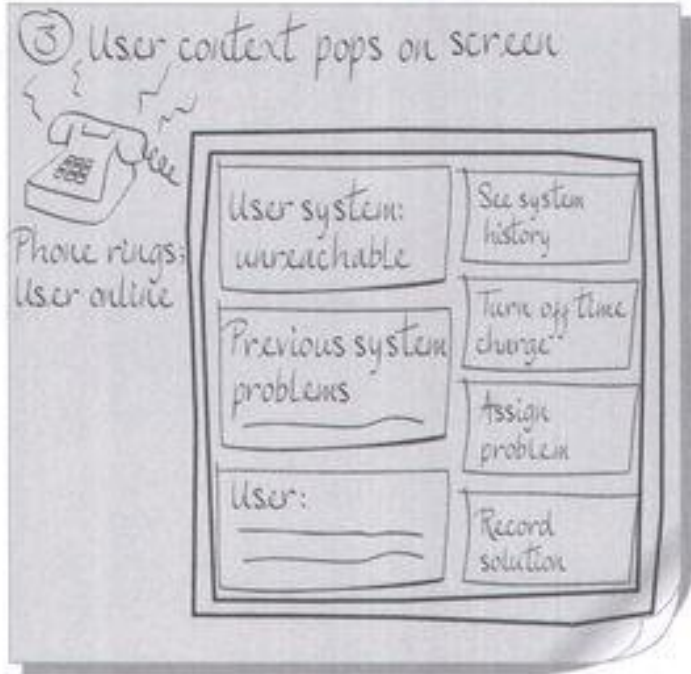 ③ User context pops on screen
Phone rings:
User online
User system:
unreachable
Previous system
problems
User:
See system
history
Turn off time
charge
Assign
problem
Record
solution